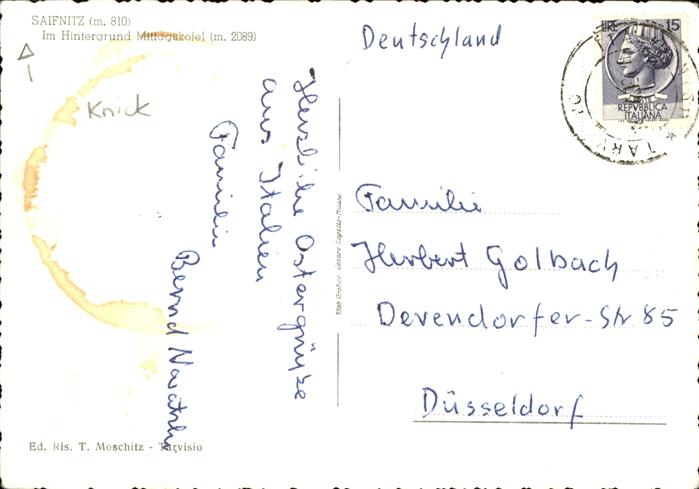 SAIFNITZ (m. 810)
Im Hintergrund Mittagskofel (m. 2089)
Knick
Herzliche Ostergrüße
aus Italien
Familie
Bernd
Ed. Ris. T. Moschitz - Tarvisio
Stab. Grafico Cesare Capello-Milano
Deutschland
LIRE 15
REPVBBLICA
ITALIANA
TARV
Familie
Herbert Golbach
Devendorfer-Str 85
Düsseldorf